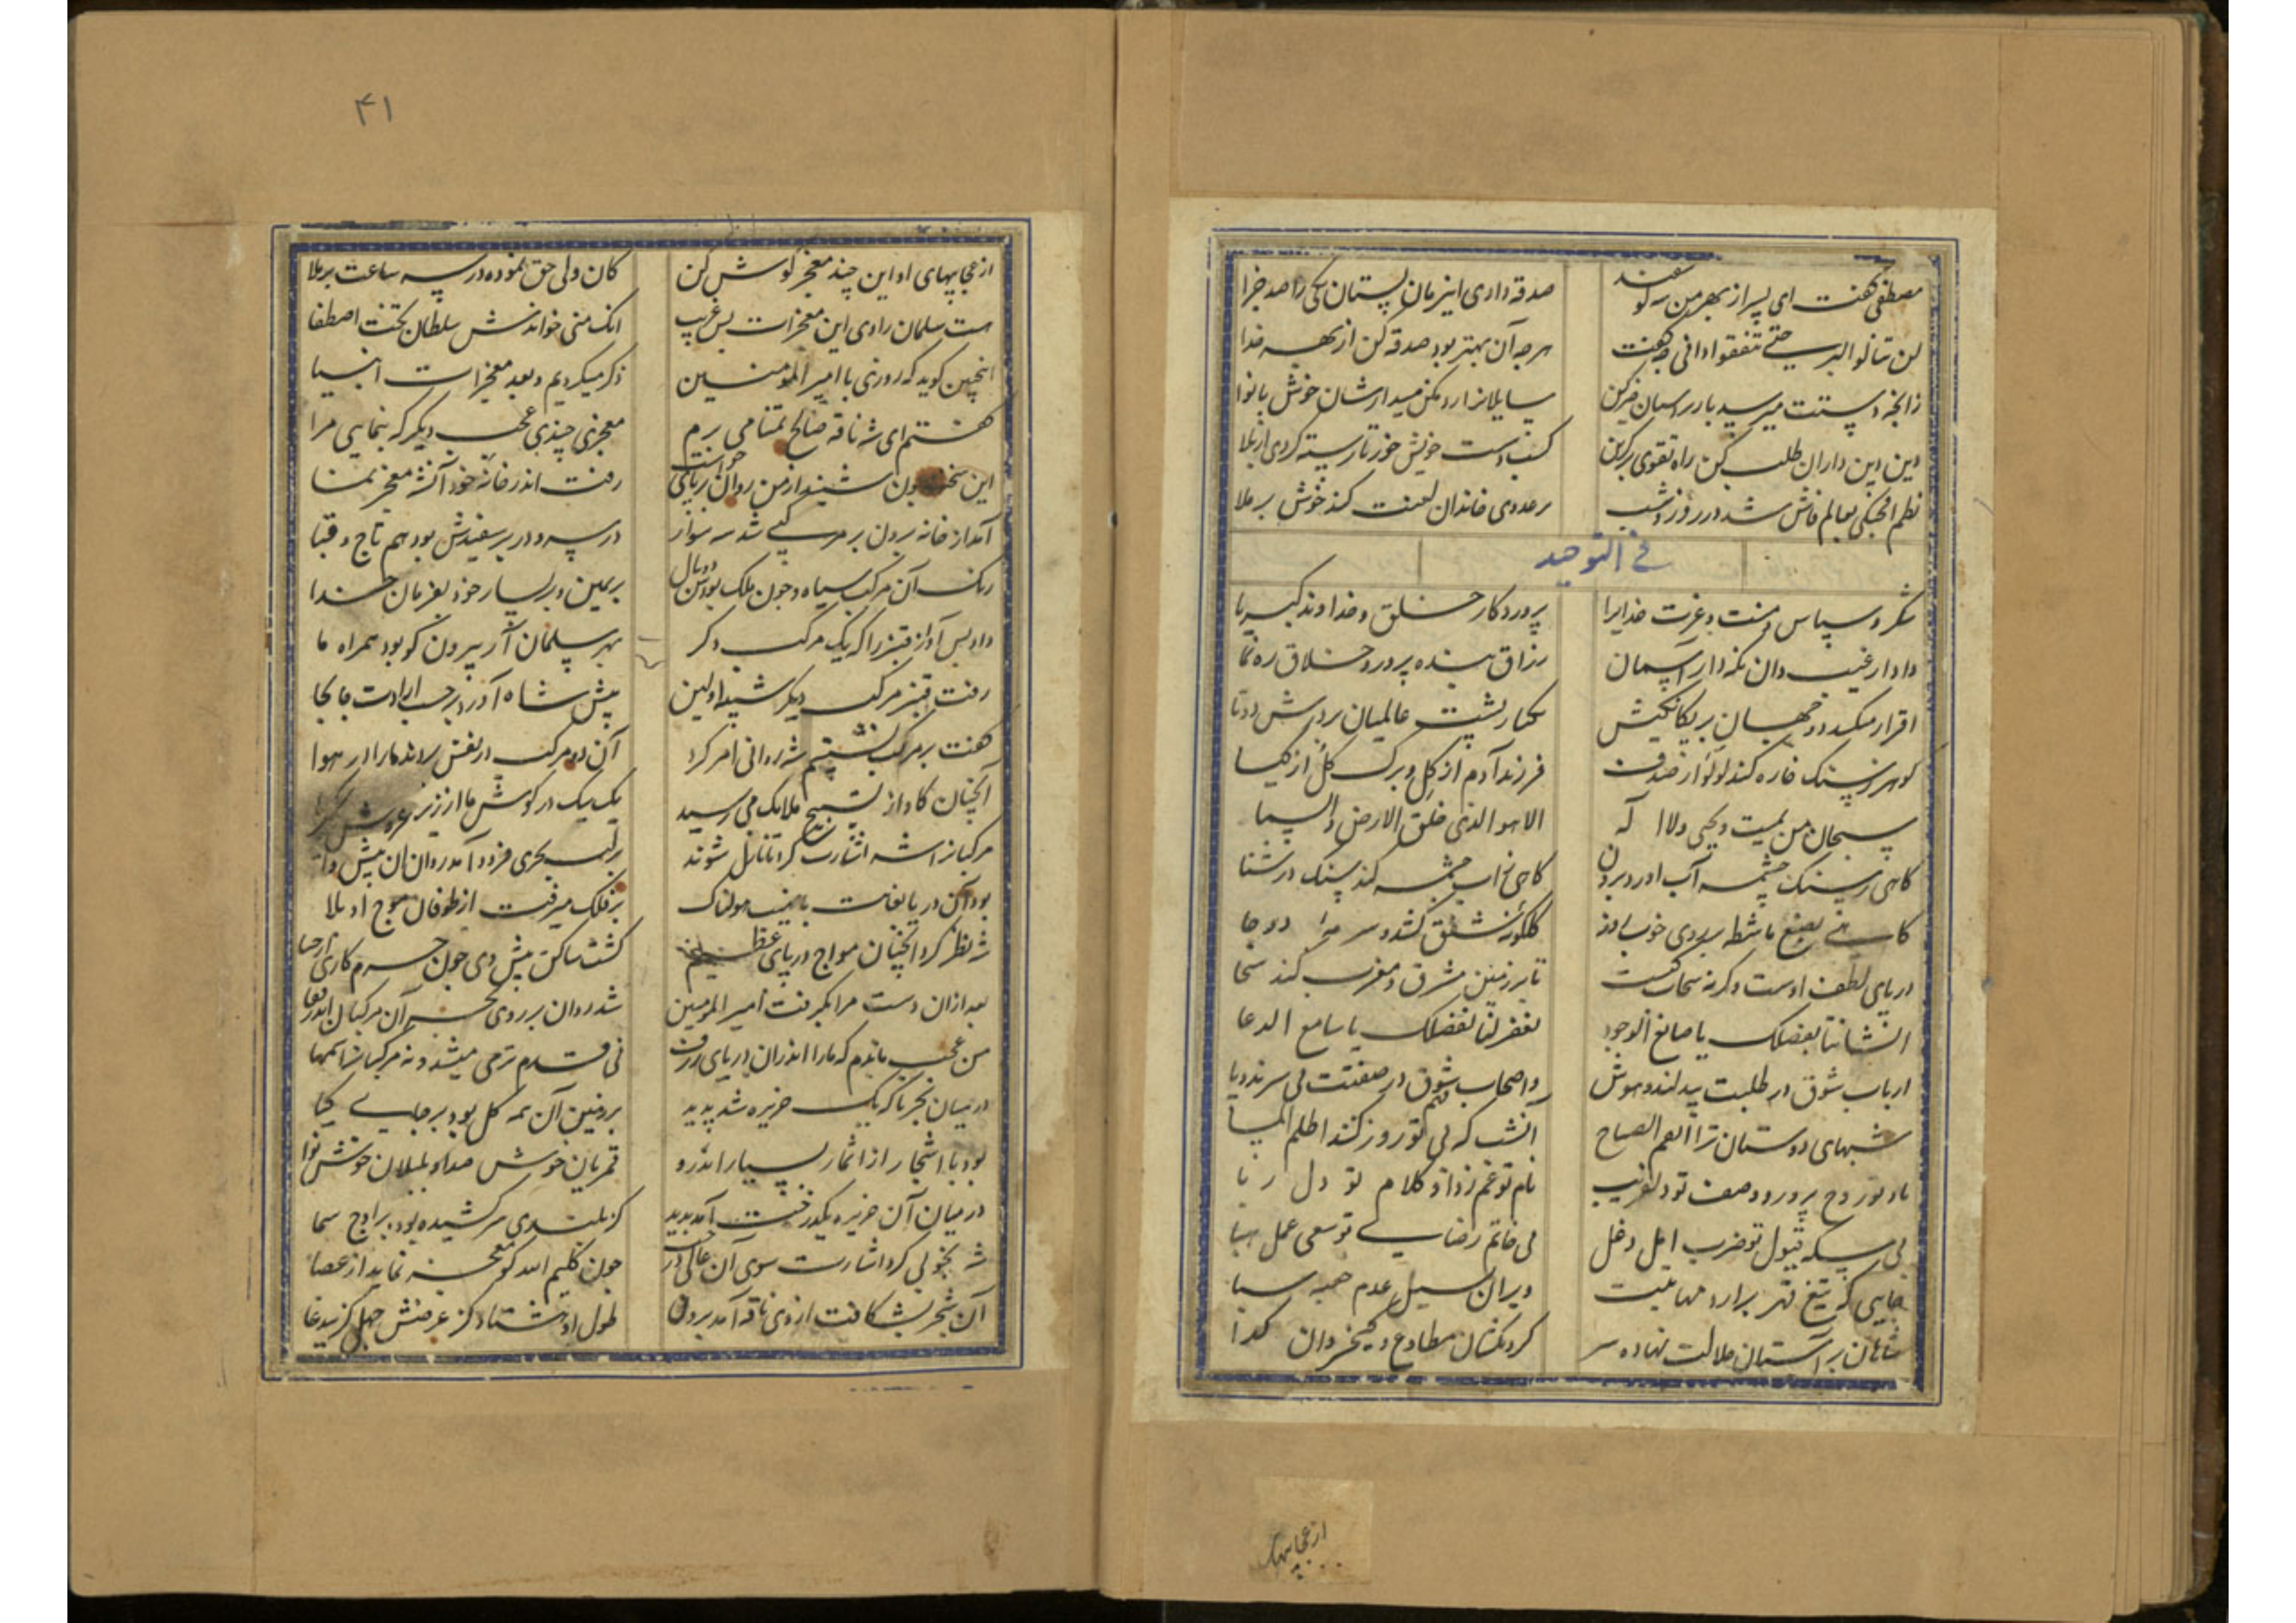 مصطفی گفت ای پسر از بهر من سه گوسفند
صدقه داری این زمان بستان یکی را صد جزا
لن تنالوا البر حتی تنفقوا دانی چه گفت
هرچه آن بهتر بود صدقه کن از بهر خدا
زانچه دستت میرسد با
سایلانرا رد مکن میدارشان خوش با نوا
دین دین داران طلب کن راه تقوی
کسب دست خویش خور تا رسته کردی از بلا
نظم بعالم فاش شد در روز و شب
بر عدوی خاندان لعنت کند خوش بر ملا
فی التوحید
شکر و سپاس و منت و عزت خدایرا
پروردکار خلق و خداوند کبریا
دادار غیب دان نکه دار آسمان
رزاق بنده پرور و خلاق ره نما
اقرار میکند دو جهان بر یکانکیش
یکتا و پشت عالمیان بر درش دوتا
کوهر ز سنک خاره کند لولو از صدف
فرزند آدم از گل و برک گل از کیا
سبحان من یمیت و یحیی و لا اله
الا هو الذی خلق الارض والسما
کاهی ز سنک چشمه آب آورد برون
کاهی ز آب چشمه کند سنک در شتا
کاهی بصنع ماشطه بر روی خوب روز
کلکونه شفق کند و سرمه دوجا
دریای لطف اوست وکرنه سحاب کیست
تا بر زمین مشرق و مغرب کند سخا
انشاتنا بفضلک یا صانع الوجود
فغفر لنا بفضلک یا سامع الدعا
ارباب شوق در طلبت بیدلند و هوش
واصحاب فهم در صفتت بی سرند و پا
شبهای دوستان ترا انعم الصباح
آنشب که بی تو روز کند اظلم المسا
یاد تو روح پرور و وصف تو دلفریب
نام تو غم زدا و کلام تو دل ربا
بی سکه قبول تو ضرب امل دغل
بی خاتم رضای تو سعی عمل هبا
جایی که تیغ قهر برارد مهابتت
ویران سیل عدم سبا
شاهان بر آستان جلالت نهاده سر
کردنکشان مطاوع و کیخسروان کدا
از عجایبهای
۴۱
از عجایبهای او این چند معجز کوش کن
کان ولی حق نموده در سه ساعت بر ملا
هست سلمان راوی این معجزات بس غریب
انک منی خواندش سلطان تخت اصطفا
اینچنین کوید که روزی با امیر المومنین
ذکر میکردیم و بعد معجزات انبیا
گفتم ای شه ناقه صالح تمنا می برم
معجزی چندی عجب دیکر که بنمایی مرا
این سخن چون شنید از من روان برپای خواست
رفت اندر خانه خود آنشه معجز نما
آمد از خانه برون بر مرکبی شد سوار
در سر و در بر سفیدش بود هم تاج و قبا
رنک آن مرکب سیاه و چون ملک بودش دو بال
بر یمین و بر یسار خود بفرمان خدا
داد پس آواز قنبر را که یک مرکب دکر
بهر سلمان آر بیرون کو بود همراه ما
رفت قنبر مرکب دیکر اولین
پیش شاه آورد بر حسب ارادت جابجا
گفت بر مرکب نشستم شه روانی امر کرد
آن دو مرکب در نفس بردند ما را در هوا
آنچنان کاواز تسبیح ملایک می رسید
یک بیک در کوش ما از زیر عرش کبریا
مرکبانرا شه اشارت کرد تا نازل شوند
بر لب بحری فرود آمد روان
بود آن دریا بغایت با نهیب هولناک
بر فلک میرفت از طوفان موج او بلا
شه نظر کرد آنچنان مواج دریای عظیم
کشت ساکن پیش وی چون جرم کاری از حیا
بعد ازان دست مرا بکرفت امیر المومنین
شد روان بر روی بحر آن مرکبان اندر قفا
من عجب ماندم که ما را اندران دریای ژرف
نی قدم تر می میشد و نه مرکبانرا سمها
در میان بحر ناکه یک جزیره شد پدید
بر زمین آن همه کل بود بر جای کیا
بود با اشجار از اثمار بسیار اندرو
قمریان خوش صدا و بلبلان خوش نوا
در میان آن جزیره یکدرخت آمد پدید
کز بلندی سر کشیده بود بر اوج سما
شه بچوبی کرد اشارت سوی آن عالی درخت
چون کلیم الله کو معجز نماید از عصا
آن شجر بشکافت از وی ناقه آمد برون
طول او هشتاد کز عرضش چهل کز